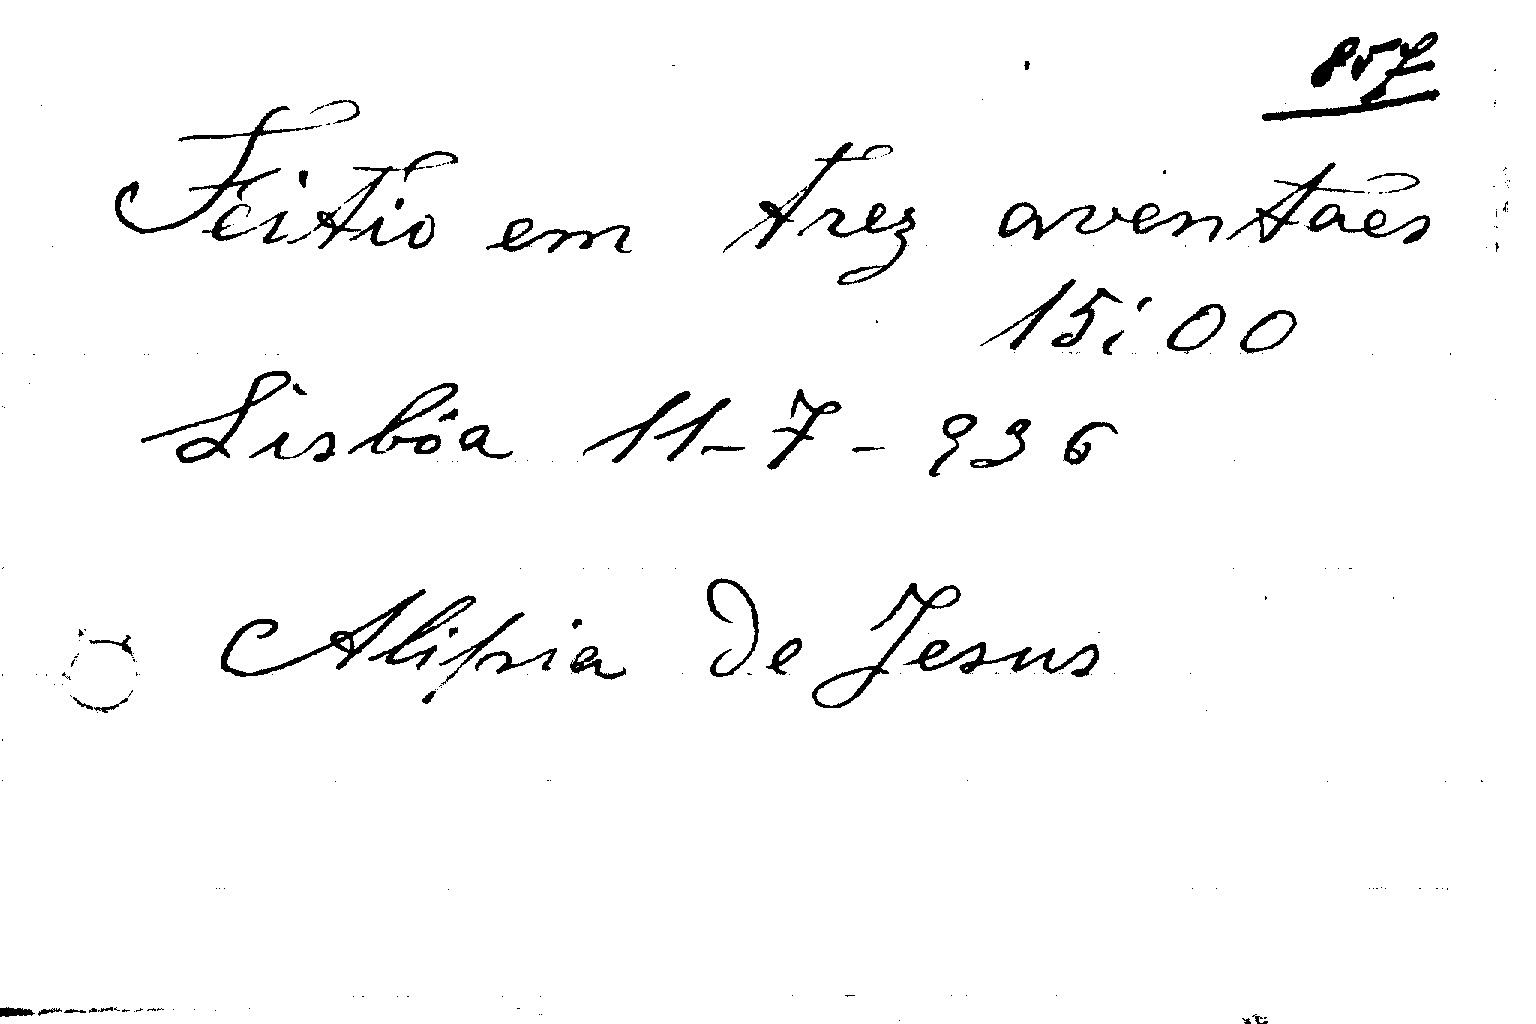 857
Feitio em trez aventaes
15:00
Lisbôa 11-7-936
Alipia de Jesus